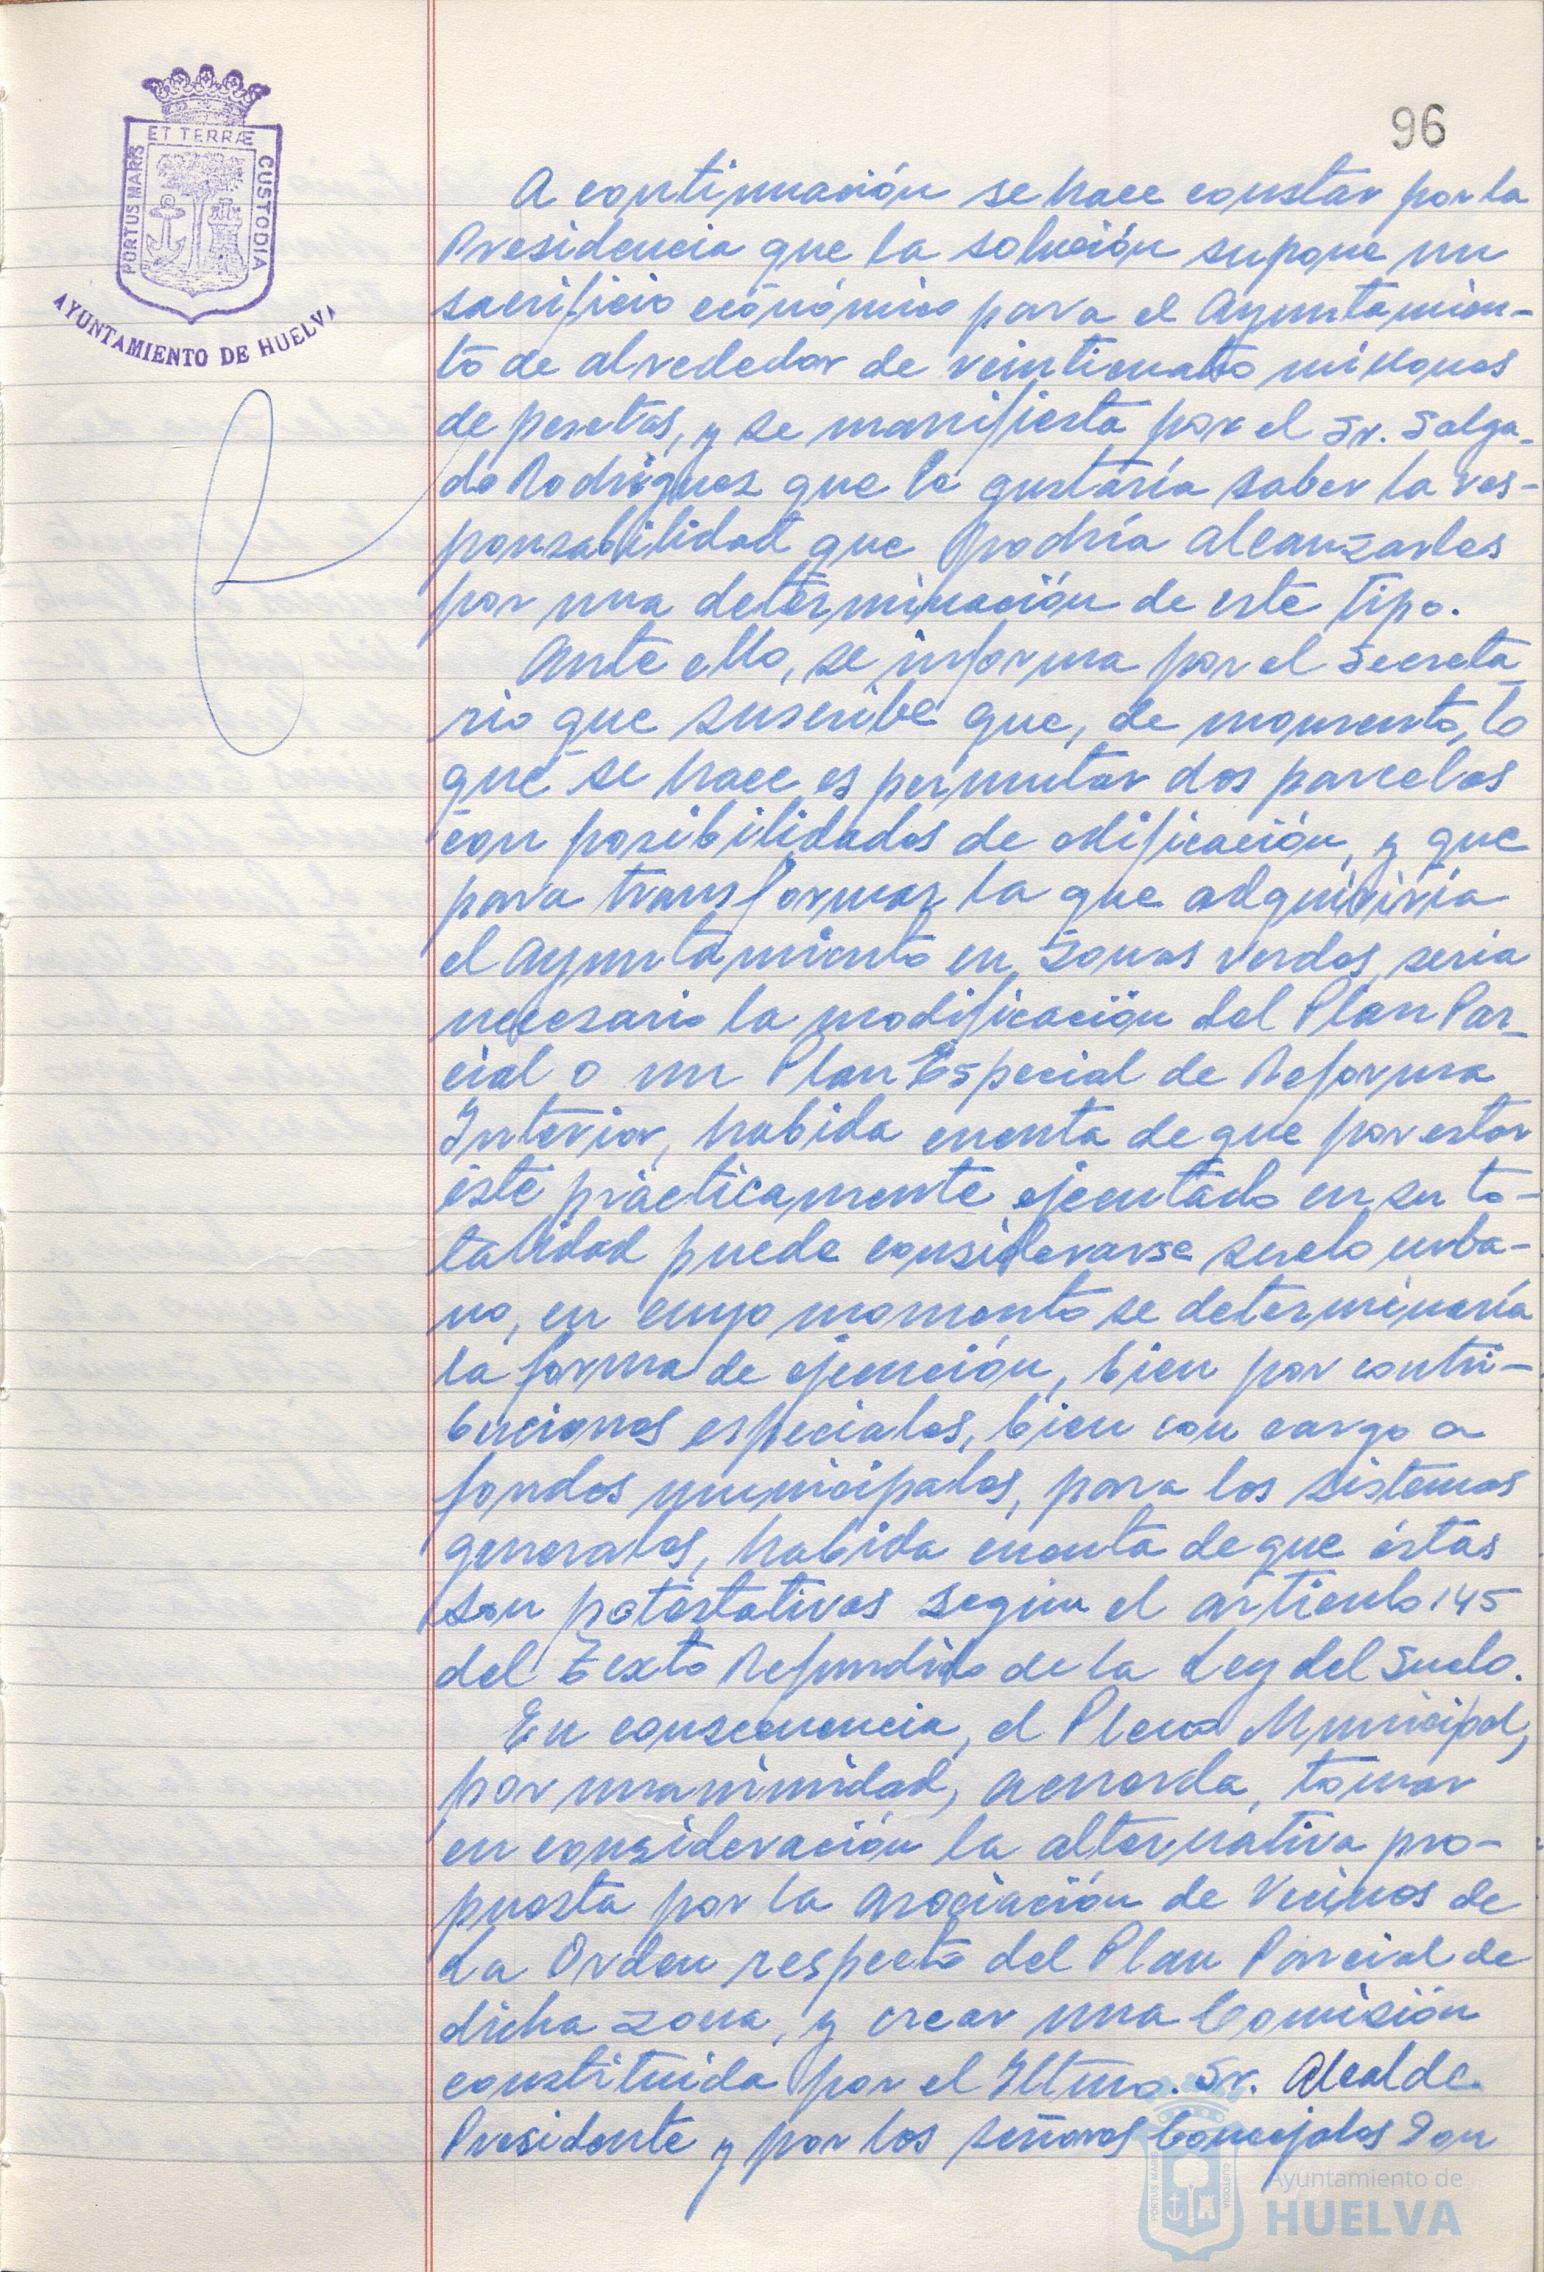 ET TERRÆ
PORTUS MARIS
CUSTODIA
AYUNTAMIENTO DE HUELVA
96
A continuación se hace constar por la
Presidencia que la solución supone un
sacrificio económico para el Ayuntamien-
to de alrededor de veinticuatro millones
de pesetas, y se manifiesta por el Sr. Salga-
do Rodríguez que le gustaría saber la res-
ponsabilidad que podría alcanzarles
por una determinación de este tipo.
Ante ello, se informa por el Secreta
rio que suscribe que, de momento, lo
que se hace es permutar dos parcelas
con posibilidades de edificación, y que
para transformar la que adquiriría
el Ayuntamiento en zonas verdes sería
necesario la modificación del Plan Par-
cial o un Plan Especial de Reforma
Interior, habida cuenta de que por estar
éste prácticamente ejecutado en su to-
talidad puede considerarse suelo urba-
no, en cuyo momento se determinaría
la forma de ejecución, bien por contri-
buciones especiales, bien con cargo a
fondos municipales, para los sistemas
generales, habida cuenta de que éstas
son potestativas según el artículo 145
del Texto Refundido de la Ley del Suelo.
En consecuencia, el Pleno Municipal,
por unanimidad, acuerda, tomar
en consideración la alternativa pro-
puesta por la Asociación de Vecinos de
La Orden respecto del Plan Parcial de
dicha zona, y crear una Comisión
constituida por el Iltmo. Sr. Alcalde.
Presidente y por los señores Concejales Don
PORTUS MARIS
CUSTODIA
Ayuntamiento de
HUELVA